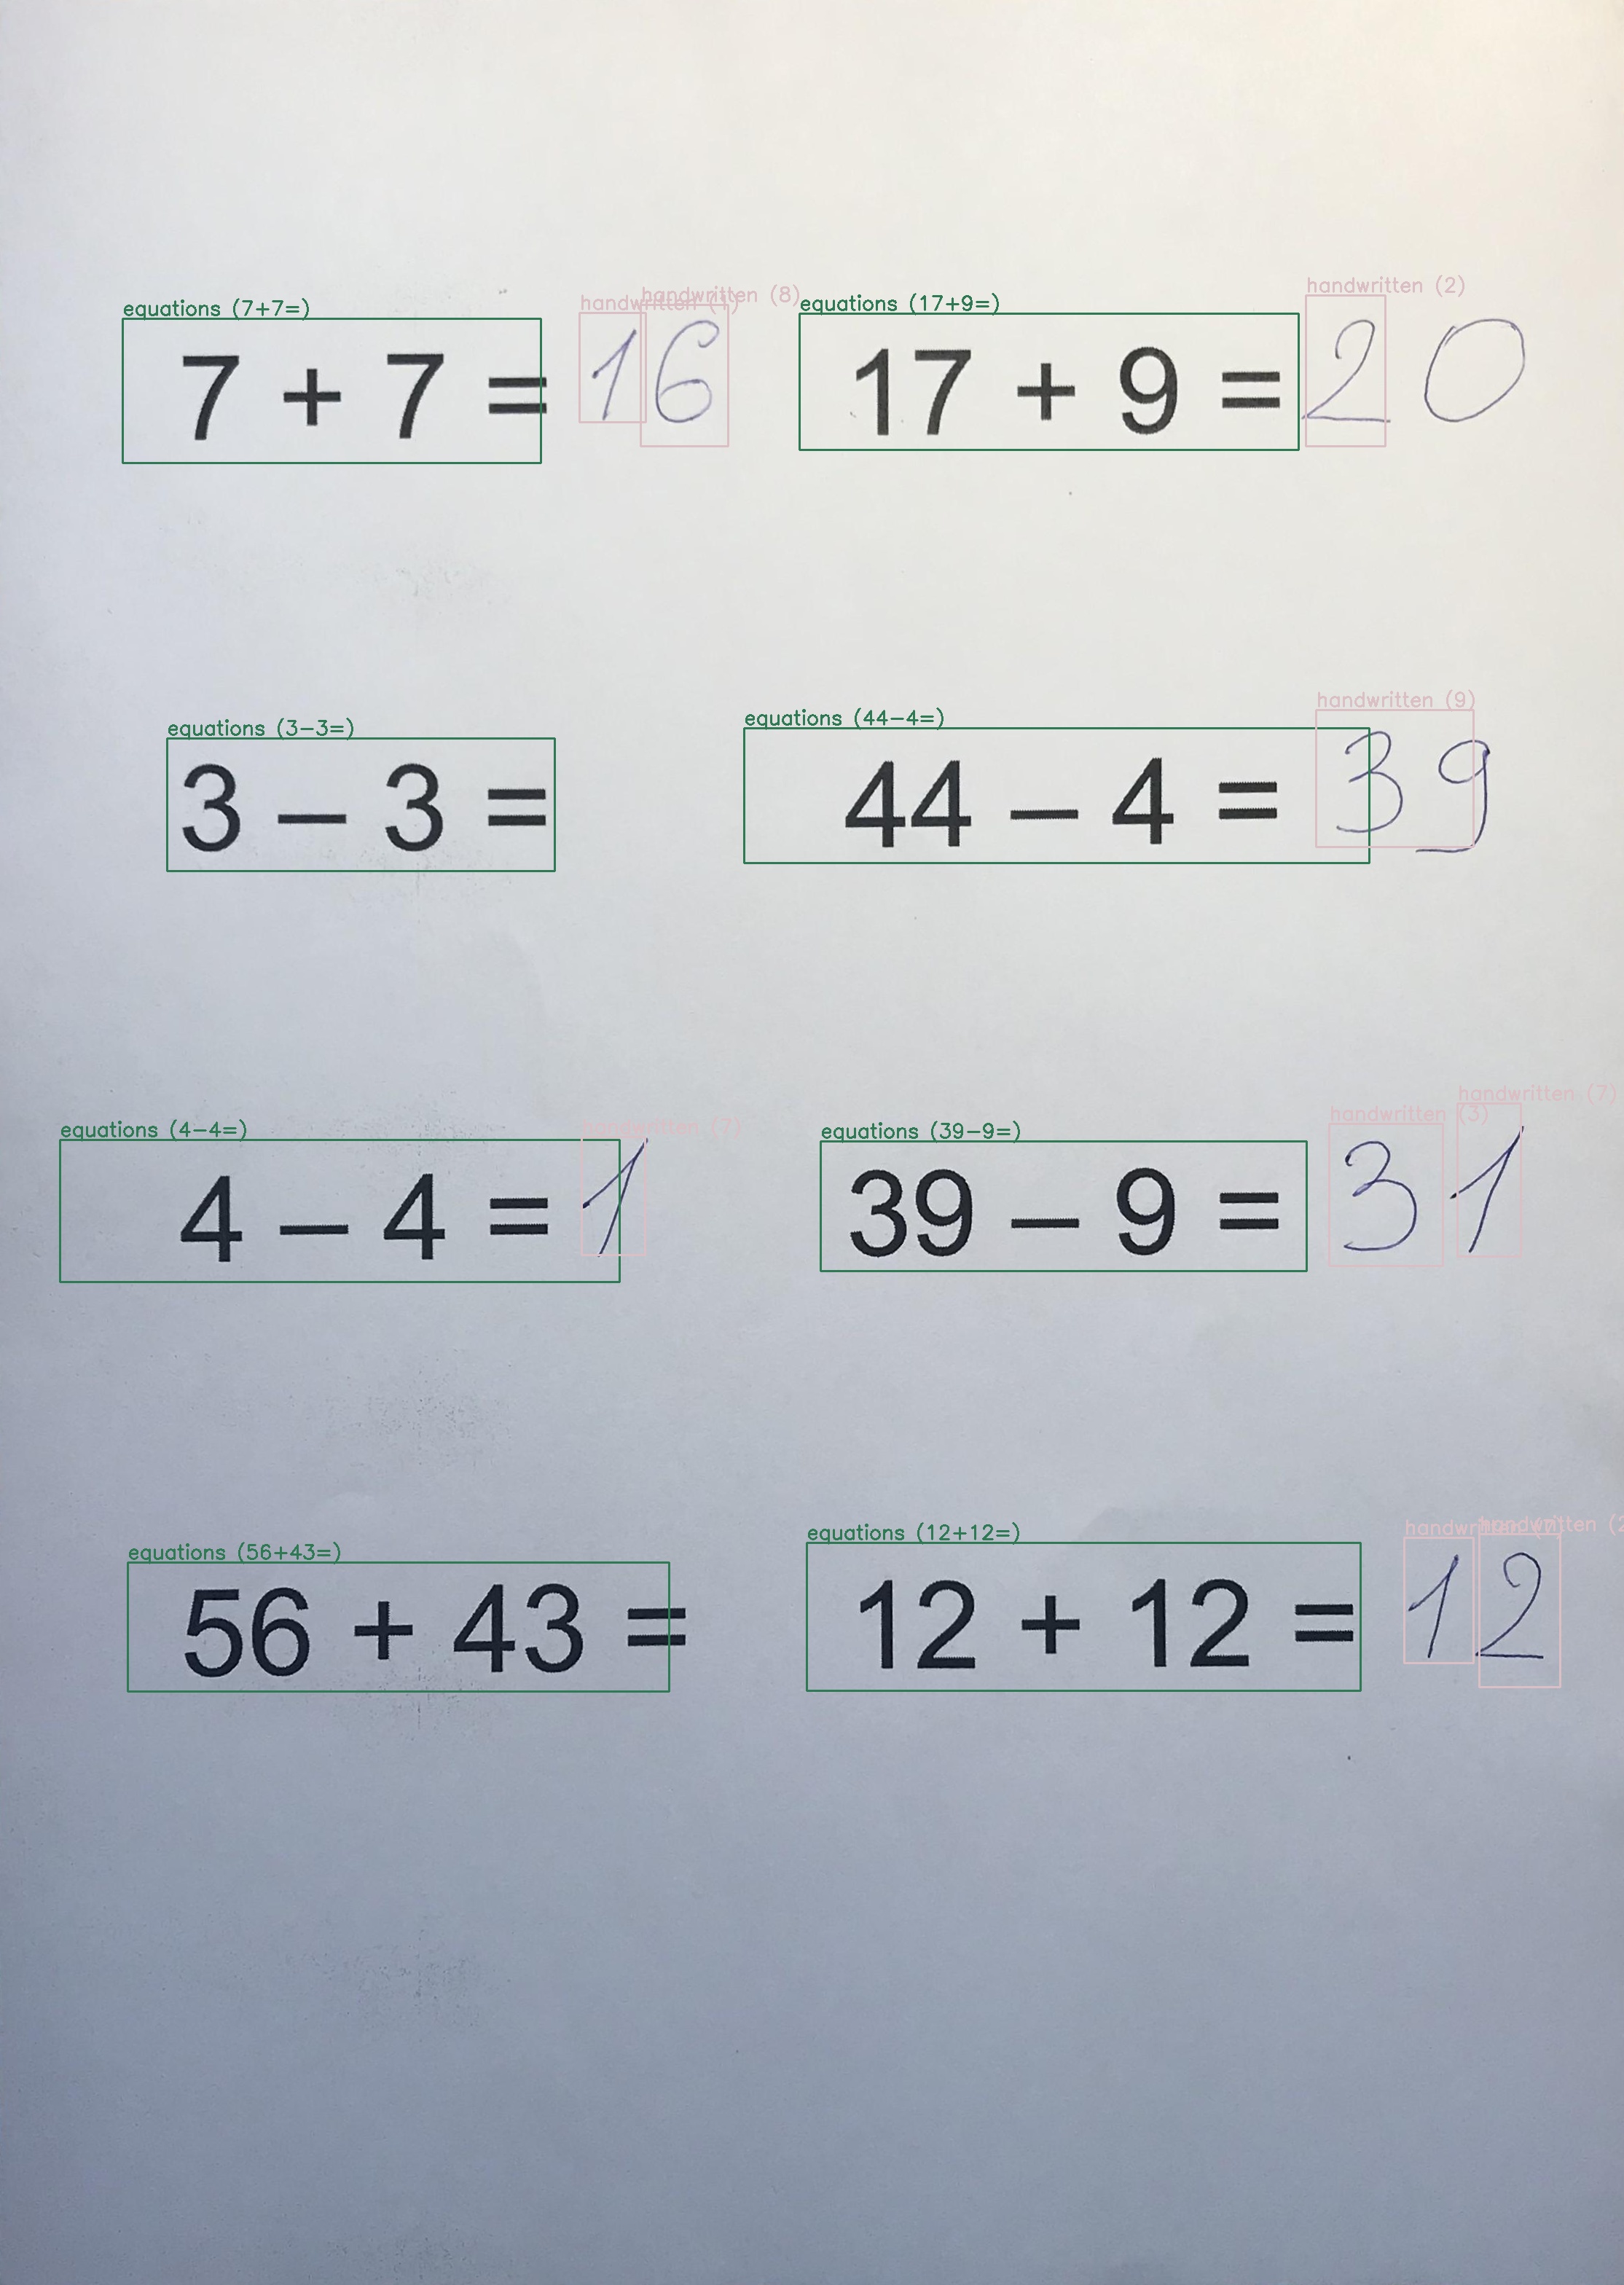 equations (7+7=) handwritten (1) handwritten (8) equations (17+9=) handwritten (2)
7 + 7 = 16 17 + 9 = 20
equations (3-3=) equations (44-4=) handwritten (9)
3 – 3 = 44 – 4 = 39
equations (4-4=) handwritten (7) equations (39-9=) handwritten (3) handwritten (7)
4 – 4 = 1 39 – 9 = 31
equations (56+43=) equations (12+12=) handwritten (7) handwritten (2
56 + 43 = 12 + 12 = 12